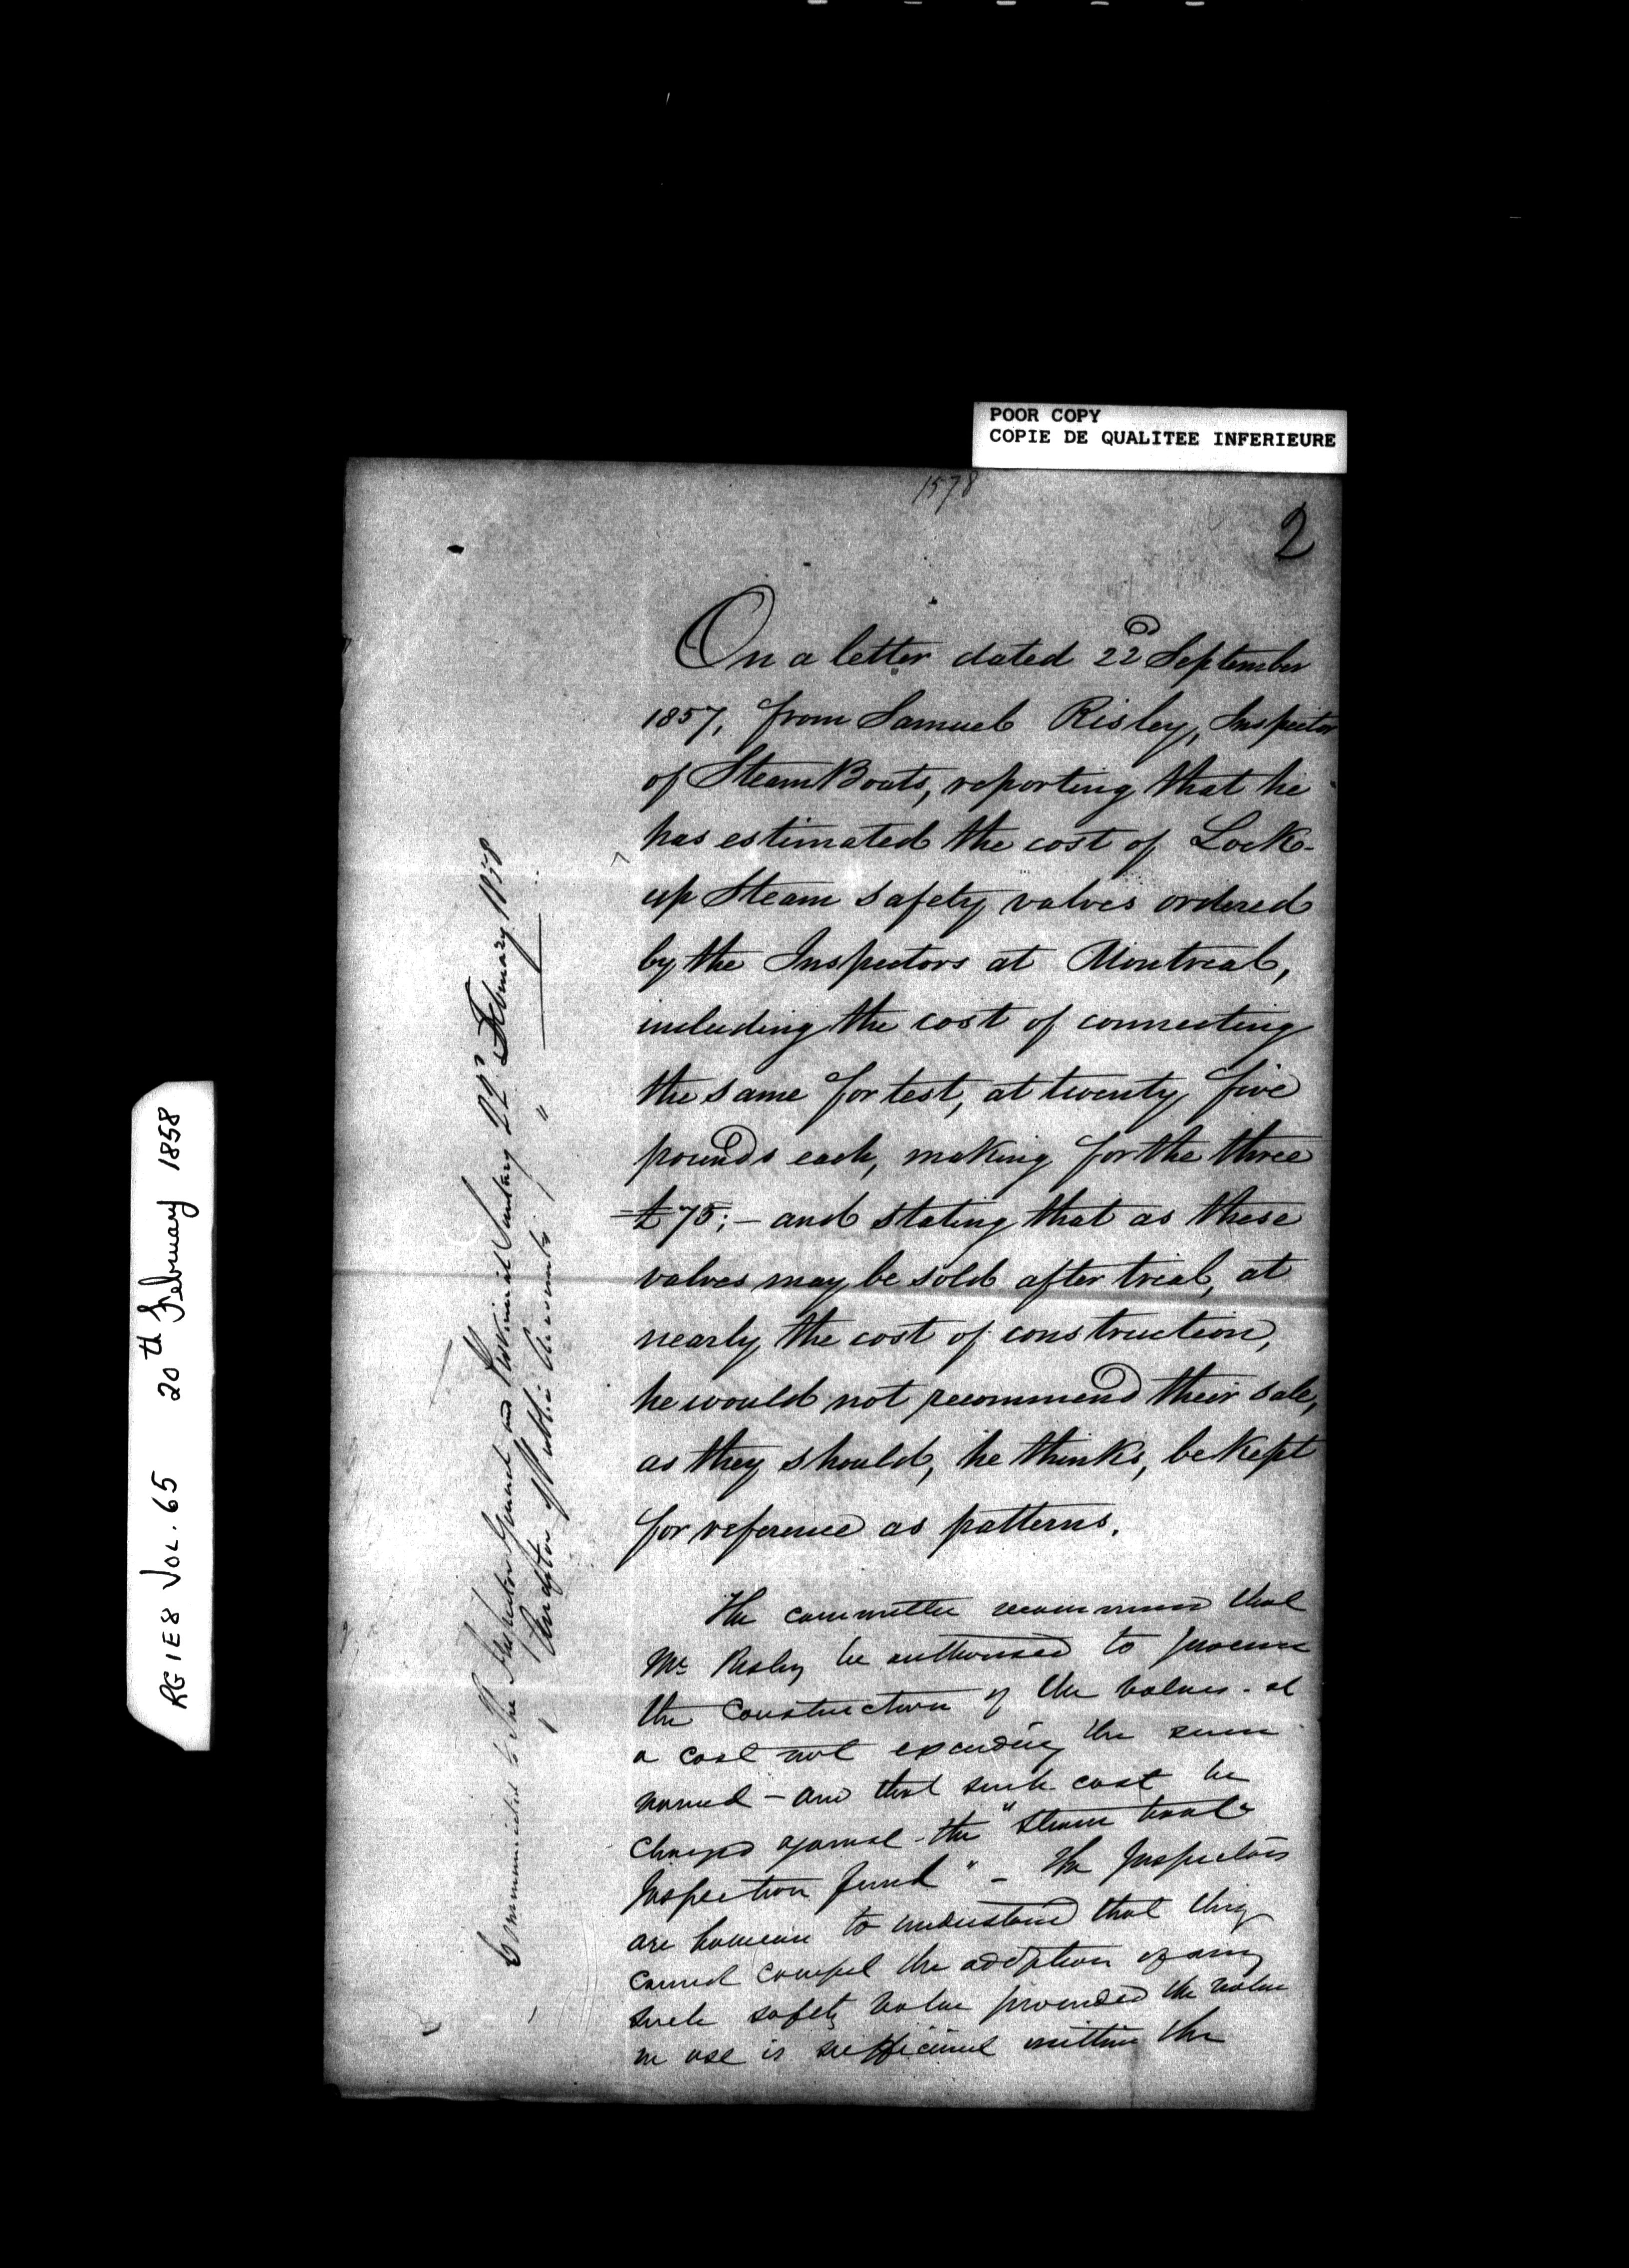 POOR COPY
COPIE DE QUALITEE INFERIEURE
1578
2
On a letter dated 22d September
1857, from Samuel Risley, Inspector
of Steam Boats, reporting that he
has estimated the cost of Lock-
up Steam safety valves ordered
by the Inspectors at Montreal,
including the cost of connecting
the same for test, at twenty five
pounds each, making for the three
£75; - and stating that as these
valves may be sold after trial, at
nearly the cost of construction,
he would not recommend their sale,
as they should, he thinks, be kept
for reference as patterns.
The committee recommend that
Mr Risley be authorised to procure
the construction of the valves - at
a cost not exceeding the sum
named - and that such cost be
charged against the "Steam boat
Inspection fund" - The Inspectors
are however to understand that they
cannot compel the adoption of any
such safety valve provided the valve
in use is sufficient within the
Communicated to the Inspector General and Provincial Secretary 22d February 1858
Auditor of Public Accounts " "
RG 1 E 8 VOL. 65 20th February 1858